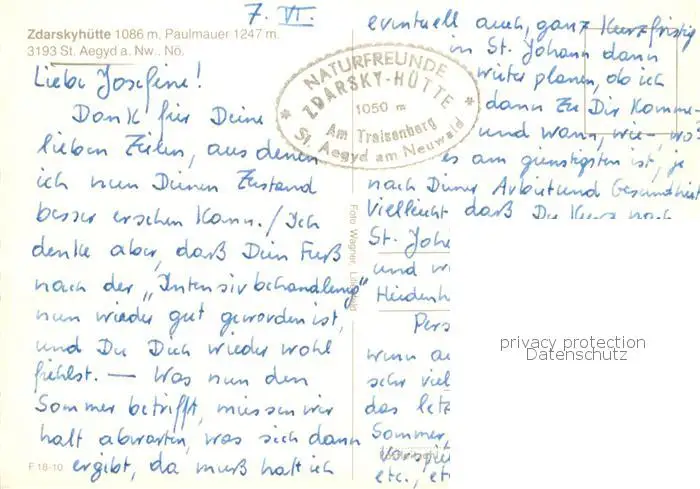 7. VI.
Zdarskyhütte 1086 m, Paulmauer 1247 m.
3193 St. Aegyd a. Nw., Nö.
Liebe Josefine!
Dank für Deine
lieben Zeilen, aus denen
ich nun Deinen Zustand
besser ersehen kann. / Ich
denke aber, daß Dein Fuß
nach der „Intensivbehandlung"
nun wieder gut geworden ist,
und Du Dich wieder wohl
fühlst. — Was nun den
Sommer betrifft, müssen wir
halt abwarten, was sich dann
ergibt, da muß halt ich
F 18-10
NATURFREUNDE
ZDARSKY-HÜTTE
1050 m
Am Traisenberg
St. Aegyd am Neuwald
Foto Wagner, Lilienfeld
eventuell auch, ganz kurzfristig
in St. Johann dann
weiter planen, ob ich
dann zu Dir komme
und wann, wie – wo
es am günstigsten ist, je
nach Deiner Arbeit und Gesundheit
Vielleicht daß Du kurz nach
St. Joh
und w
Heidenh
Pers
wenn au
sehr viel
das letz
Sommer,
Vorspie
etc., et
privacy protection
Datenschutz